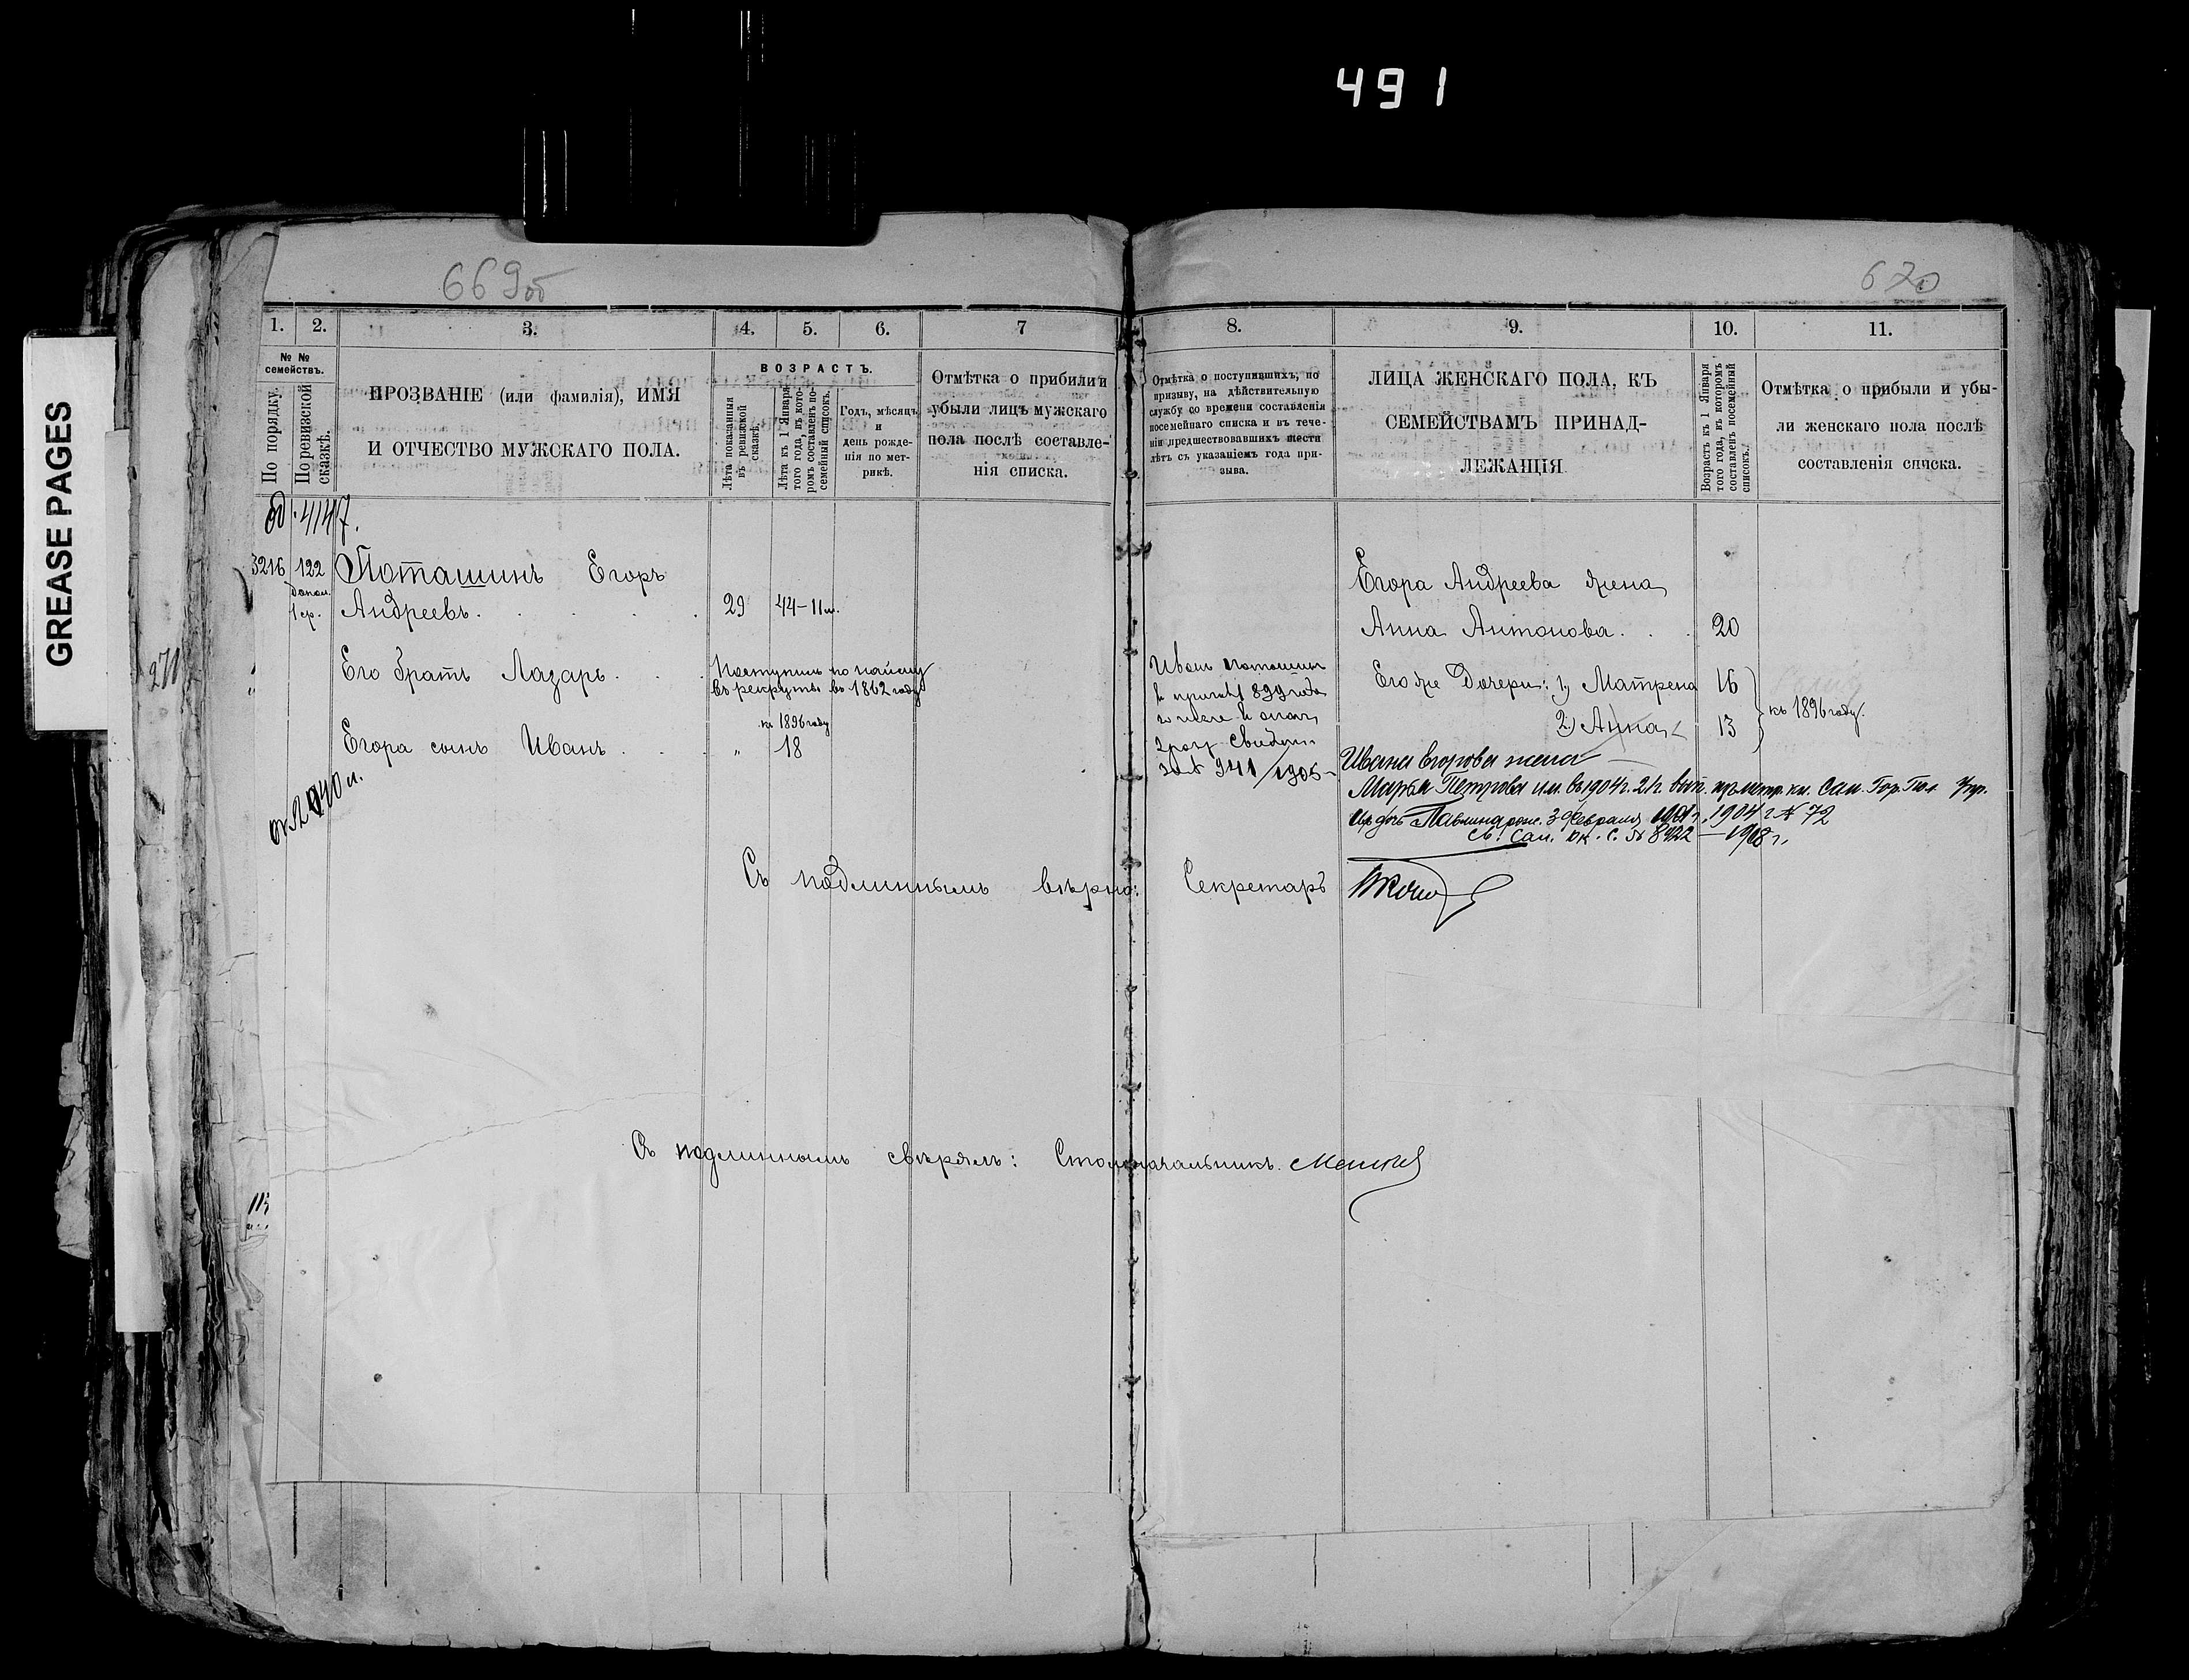 491
GREASE PAGES
669об
670
1. 2. 3. 4. 5. 6. 7
№ № семействъ.
По порядку.
По ревизской сказкѣ.
ПРОЗВАНІЕ (или фамилія), ИМЯ
И ОТЧЕСТВО МУЖСКАГО ПОЛА.
ВОЗРАСТЪ.
Лѣта показанныя
въ ревизской
сказкѣ.
Лѣта къ 1 Января
того года, въ кото-
ромъ составленъ по-
семейный списокъ.
Годъ, мѣсяцъ
и
день рожде-
нія по мет-
рикѣ.
Отмѣтка о прибыли и
убыли лицъ мужскаго
пола послѣ составле-
нія списка.
8. 9. 10. 11.
Отмѣтка о поступившихъ, по
призыву, на дѣйствительную
службу со времени составленія
посемейнаго списка и въ тече-
ніи предшествовавшихъ шести
лѣтъ съ указаніемъ года при-
зыва.
ЛИЦА ЖЕНСКАГО ПОЛА, КЪ
СЕМЕЙСТВАМЪ ПРИНАД-
ЛЕЖАЩІЯ
Возрастъ къ 1 Января
того года, въ которомъ
составленъ посемейный
списокъ.
Отмѣтка о прибыли и убы-
ли женскаго пола послѣ
составленія списка.
4147.
3216 122 Поташинъ Егоръ
допол.
1 ср. Андреевъ. 29 44-11м.
Его братъ Лазарь. Поступилъ по найму
въ рекруты въ 1862 году
къ 1896 году
Егора сынъ Иванъ. " 18
271
Иванъ Поташинъ
899 года
941/1905
Егора Андреева жена
Анна Антонова. 20
Его же Дочери: 1) Матрена 16
2) Анна 13
къ 1896 году.
Ивана Егорова жена
Марья Петрова им. въ 1904 г. 21 г. вып. изъ метр. кн. Сам. Гор. Пол. Упр.
Ихъ дочь Павлина рож. 3 Февраля 1904 г. № 72
8422 — 1908 г.
Съ подлиннымъ вѣрно: Секретарь
Съ подлиннымъ свѣрялъ: Столоначальникъ